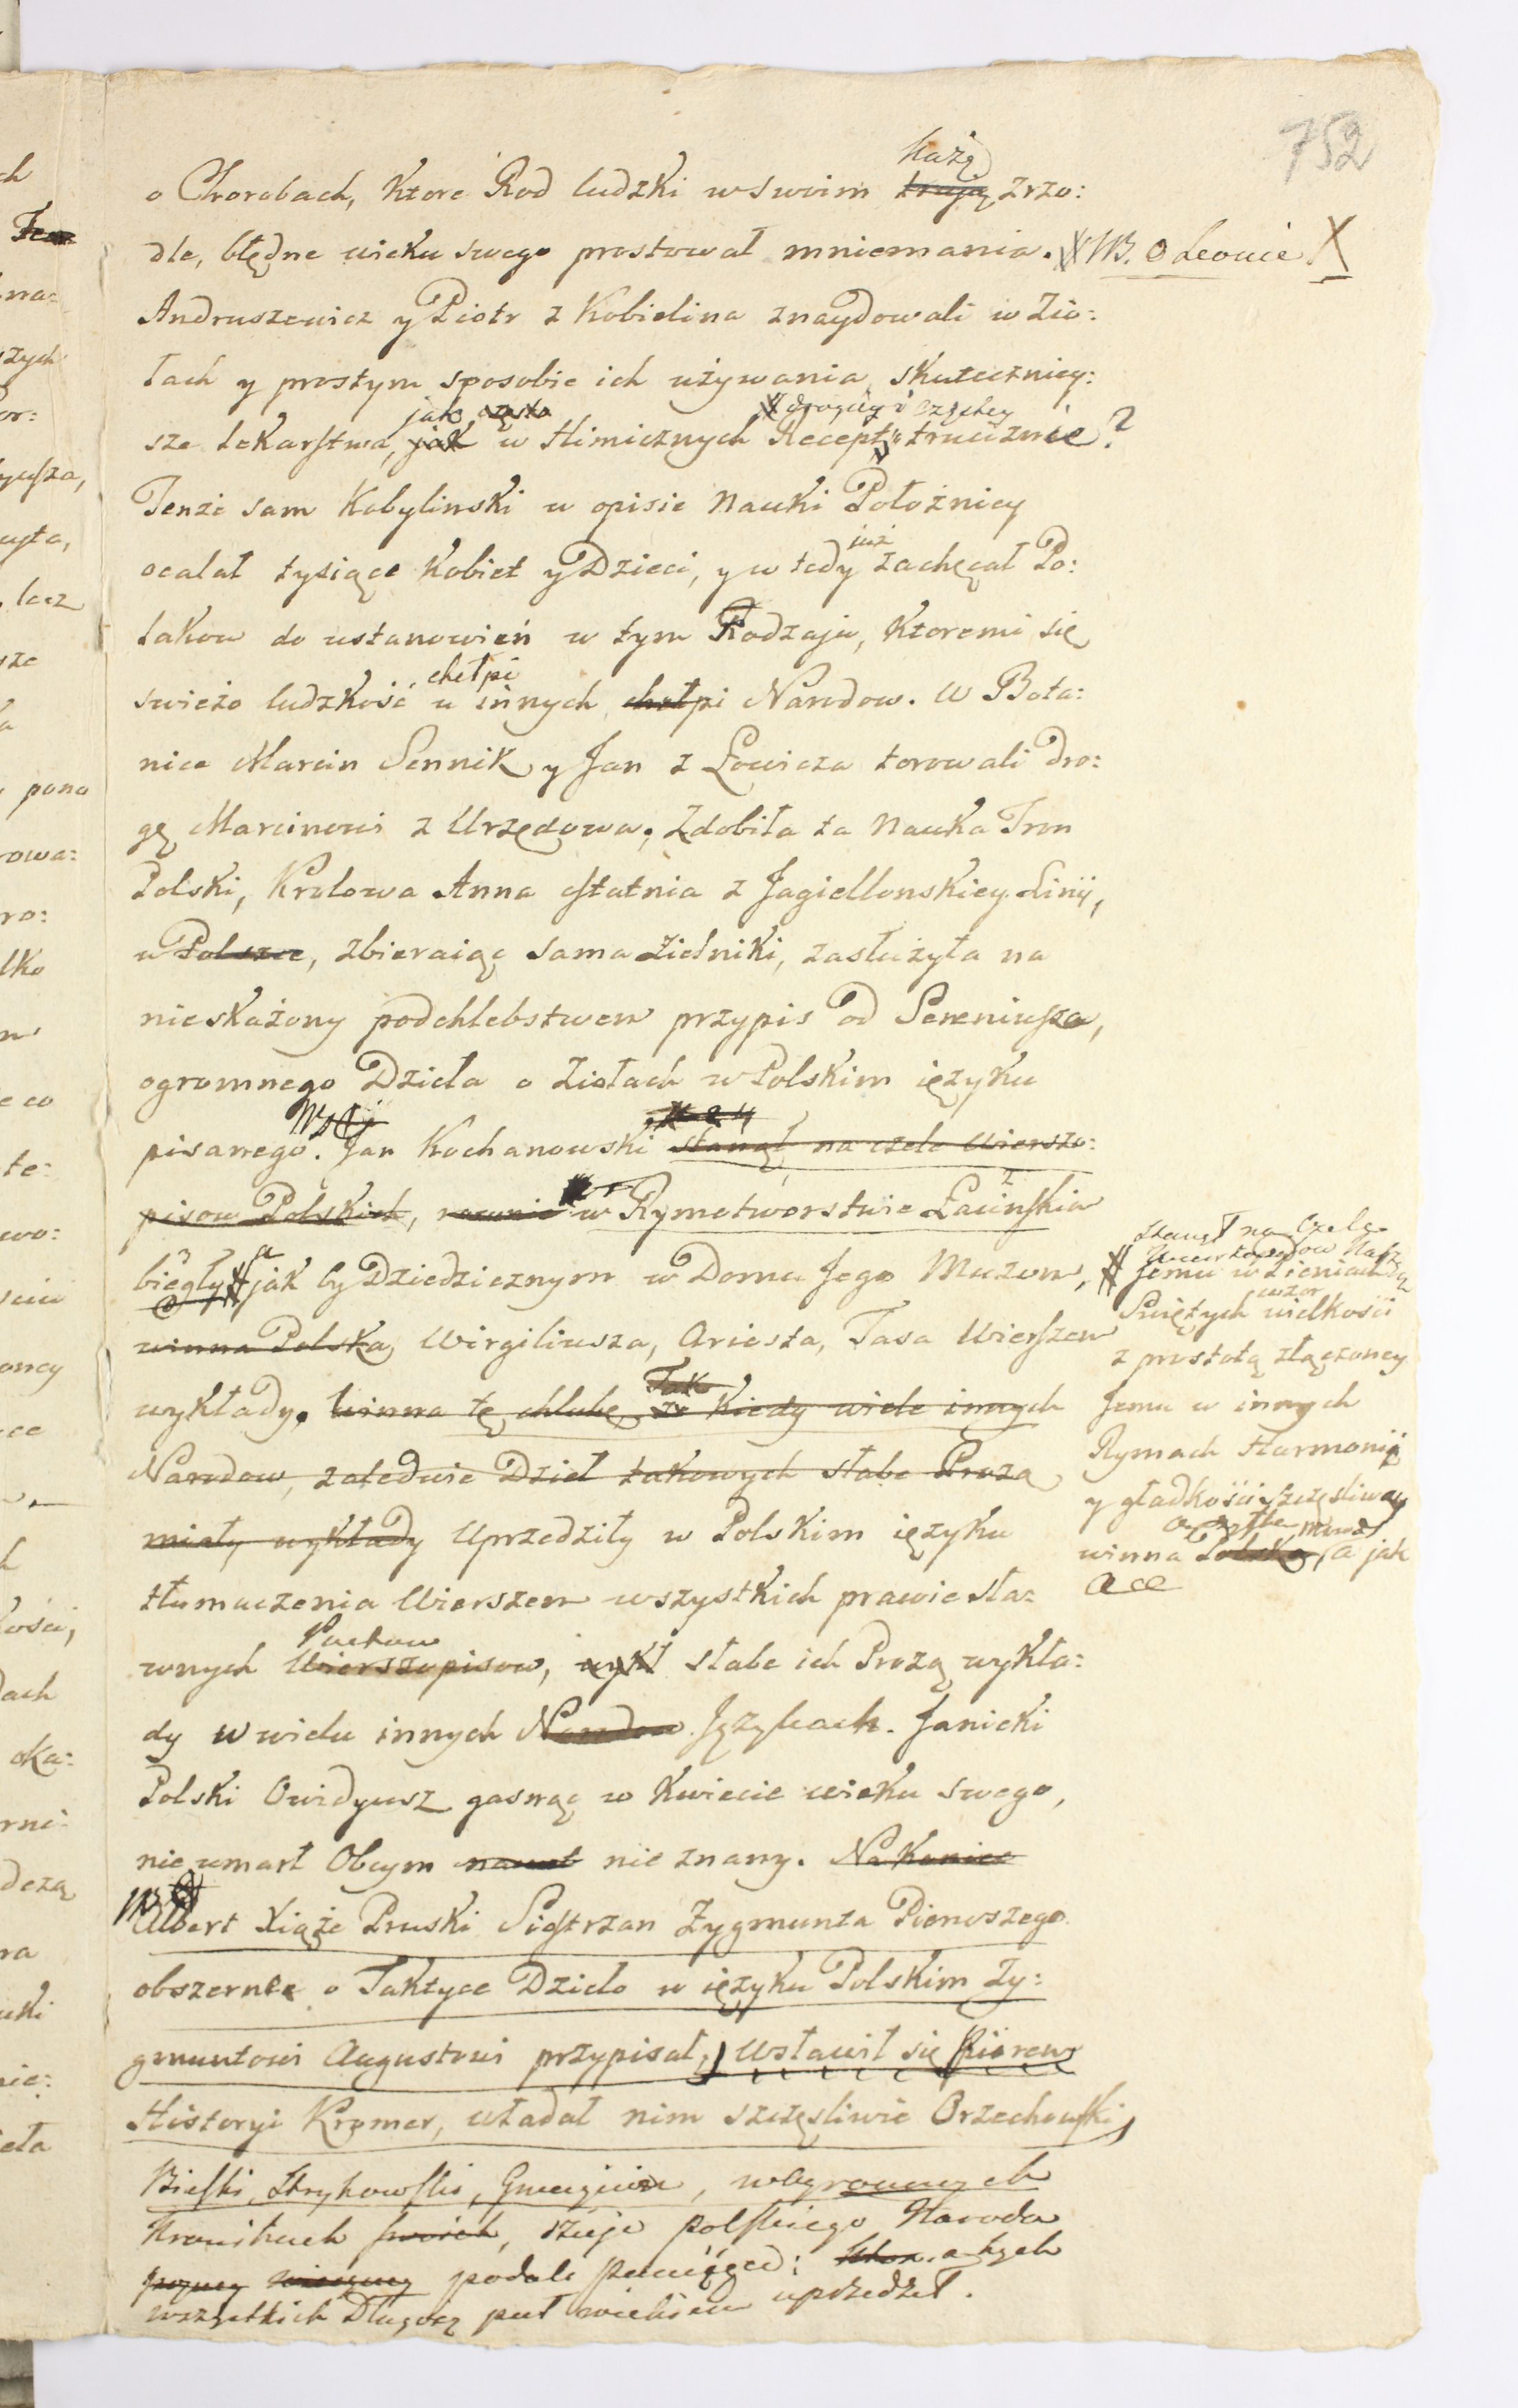 752
każą
o Chorobach, które Rod ludzki w swoim trują zrzo:
dle, błędne wieku swego prostował mniemania. NB. O Leonie X
Andruszewicz y Piotr z Kobielina znaydowali w Zio:
łach y prostym sposobie ich używania, skuteczniey:
jak często drogiey i częstey
sze lekarstwa, jak w Himicznych Recept truciznie?
Tenże sam Kobylinski w opisie Nauki Położniey
już
ocalał tysiące Kobiet y Dzieci, y w tedy zachęcał Po:
lakow do ustanowień w tym Rodzaju, Ktoremi się
chełpi
swieżo ludzkość u innych chełpi Narodow. W Bota:
nice Marcin Sennik y Jan z Łowicza torowali Dro:
gę Marcinowi z Urzędowa; Zdobiła ta Nauka Tron
Polski, Krolowa Anna ostatnia z Jagiellonskiey Linii,
w Polszcze, zbieraiąc sama Zielniki, zasłużyła na
nieskażony podchlebstwem przypis od Sereniusza,
ogromnego Dzieła o Ziołach w Polskim ięzyku
pisanego. Jan Kochanowski stanął na czele Wierszo:
pisow Polskich, rownie w Rymotworstwie Łacinskim
biegły jak by Dziedzicznym w Domu Jego Muzom,
winna Polska Wirgiliusza, Ariosta, Tasa Wierszem
wykłady. Winna tę chlubę, że Kiedy wiele innych
Tak
Narodow, zaledwie Dzieł takowych słabe Prozą
miały wykłady Uprzedziły w Polskim ięzyku
tłumaczenia Wierszem wszystkich prawie sła:
Poetow
wnych Wierszopisow, wykł słabe ich Prozą wykła:
dy w wielu innych Narodow Językach. Janicki
Polski Owidyusz gasnąc w Kwiecie wieku swego,
nie umarł Obcym nawet nie znany. Na Koniec
Albert Xiąże Pruski Siostrzan Zygmunta Pierwszego
obszerne o Taktyce Dzieło w ięzyku Polskim Zy:
gmuntowi Augustowi przypisał, Wsławił się Piórem
Historyi Kromer, władał nim szczęsliwie Orzechowski,
Bielski, Strykowski, Gwagnin, w ogromnych
Kronikach swoich, dzieje polskiego Narodu
podali pamięci; a tych
wszystkich Długosz puł wiekiem uprzedził.
stanął na Czele
Jemu w Pieniach
wzor
Swiętych wielkości
z prostotą złączoney
Jemu w innych
Rymach Harmonii
y gładkości szczęsliwey
winna Polska, a jak